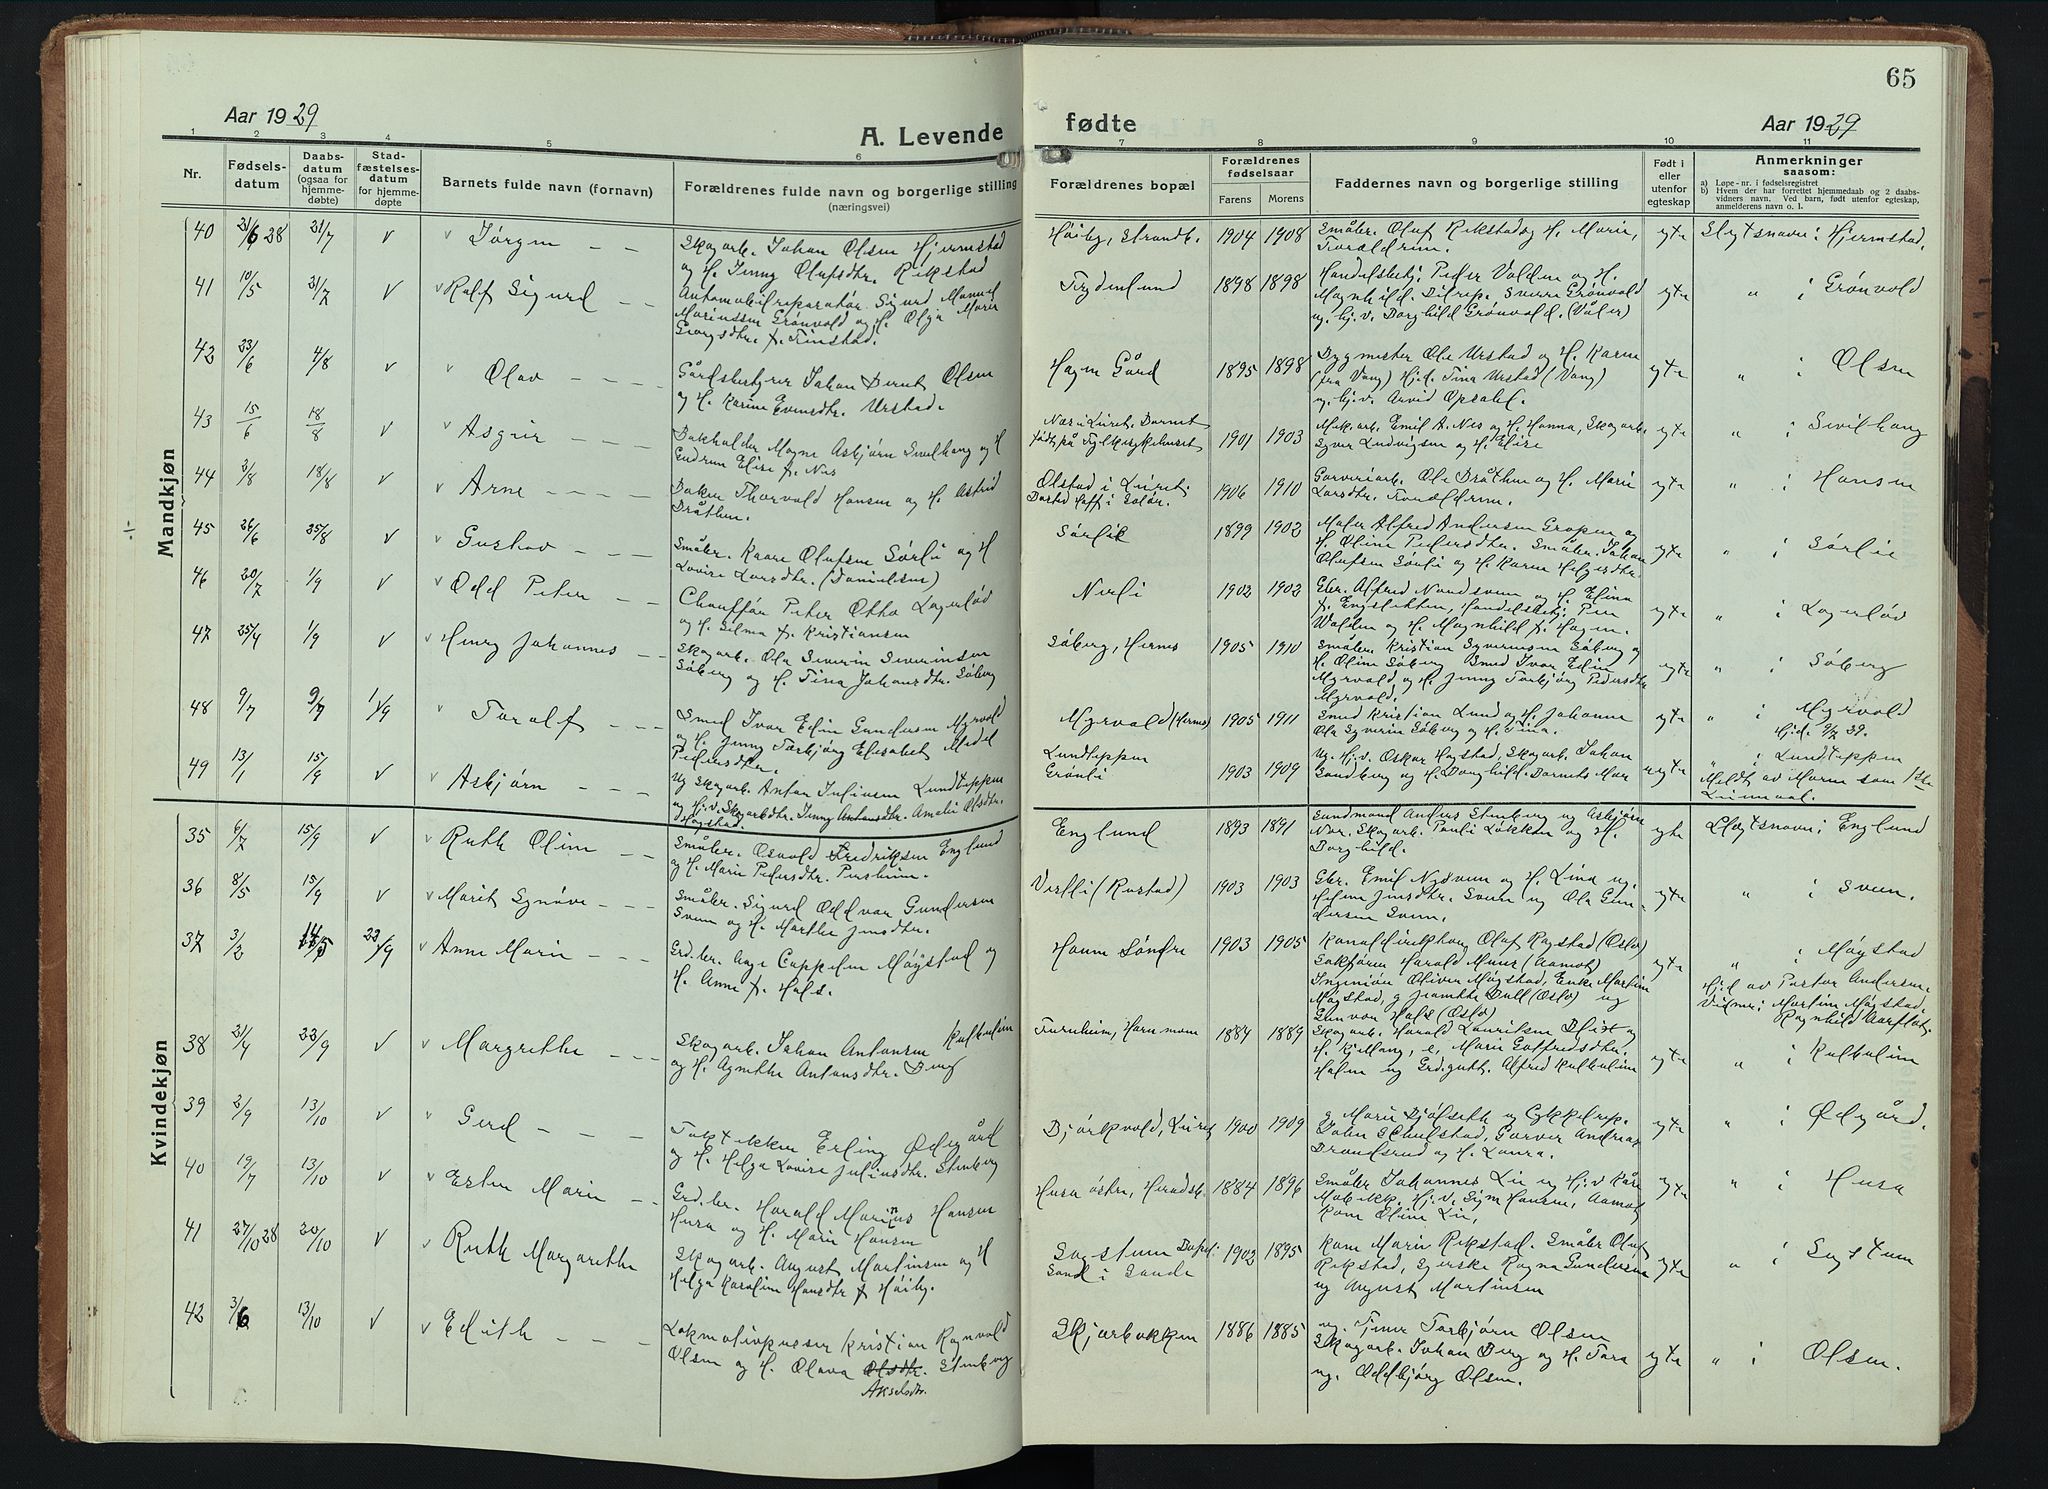 65
Aar 1929
A. Levende fødte
Aar 1929
1 2 3 4 5 6 7 8 9 10 11
Nr.
Fødsels-
datum
Daabs-
datum
(ogsaa for
hjemme-
døbte)
Stad-
fæstelses-
datum
for hjemme-
døpte
Barnets fulde navn (fornavn)
Forældrenes fulde navn og borgerlige stilling
(næringsvei)
Forældrenes bopæl
Forældrenes
fødselsaar
Farens Morens
Faddernes navn og borgerlige stilling
Født i
eller
utenfor
egteskap
Anmerkninger
saasom:
a) Løpe-nr. i fødselsregistret
b) Hvem der har forrettet hjemmedaab og 2 daabs-
vidners navn. Ved barn, født utenfor egteskap,
anmelderens navn o. l.
Mandkjøn
40 21/6 28 21/7 v Jørgen
Skogarb. Johan Olsen Hjermstad
og H. Jenny Olufsdtr. Rikstad
Høiby, Strandb. 1904 1908
Småbr. Oluf Rikstad og H. Marie,
Forældrene.
egte Slegtsnavn: Hjermstad.
41 10/5 21/7 v Rolf Sigurd
Automobilreparatør Sigurd Manuel
Marinussen Grønvold og H. Olga Marie
Georgsdtr. f. Finstad.
Frydenlund 1898 1898
Handelsbetj. Peder Volden og H.
Magnhild. Bilrep. Sverre Grønvold
ug. hj.v. Borghild Grønvold. (Våler)
egte " : Grønvold
42 23/6 4/8 v Olav
Gårdsbestyrer Johan Bernt Olsen
og H. Karine Evensdtr. Urstad.
Hagen Gård 1895 1898
Bygmester Ole Urstad og H. Karen
(fra Vang) Hj.d. Tina Urstad (Vang)
ug. hj.v. Arvid Opsahl.
egte " : Olsen
43 15/6 18/8 v Asgeir
Bokholder Magne Asbjørn Sivilhaug og H
Gudrun Elise f. Nes
født på Fylkessykehuset 1901 1903
Mek.arb. Emil A. Nes og H. Hanna, Skogarb.
Syver Ludvigsen og H. Elise
egte " : Sivilhaug
44 3/8 18/8 v Arne
Baker Thorvald Hansen og H. Astrid
Bråthen.
Ølstad i Leiret. 1906 1910
Garveriarb. Ole Bråthen og H. Marie
Larsdtr. Foræeldrene.
egte " : Hansen
45 26/6 25/8 v Gustav
Småbr. Kaare Olufsen Sørli og H
Lovise Larsdtr. (Danielsen)
Sørlie 1899 1902
Maler Alfred Andersen Gropen og
H. Oline Pedersdtr. Småbr. Johan
Olufsen Sørli og H. Karen Helgesdtr.
egte " : Sørlie
46 20/7 1/9 v Odd Peter
Chauffør Peter Otto Lagerløv
og H. Selma f. Kristiansen
Nerli 1902 1902
Gbr. Alfred Nordsveen og H. Elina
f. Engslikken, Handelsbetj. Peer
Volden og H. Magnhild f. Hagen.
egte " : Lagerløv
47 25/4 1/9 v Henry Johannes
Skogarb. Ola Severin Severinsen
Søberg og H. Tina Johansdtr. Søberg
Søberg, Hernes 1905 1910
Småbr. Kristian Syversen Søberg og
H. Oline Søberg Smed Ivar Edin
Myrvold og H. Jenny Torbjørg Pedersdtr.
Myrvold.
egte " : Søberg
48 9/7 9/7 1/9 Toralf
Smed Ivar Edin Gundersen Myrvold
og H. Jenny Torbjørg Elisabet Midel
Pedersdtr.
Myrvold (Hernes) 1905 1911
Smed Kristian Lund og H. Johanne
Ola Syverin Søberg og H. Tina.
egte " : Myrvold
Hj.d. 9/7 29.
49 13/1 15/9 v Asbjørn
Ug Skogarb. Anton Juliussen Lundteppen
og Hj.v. Skogarbdtr. Jenny Antonsdtr. Amalie Olsdtr.
Høgstad.
Lundteppen
Grønli 1903 1909
Ug. Hj.v. Oskar Høgstad, Skogarb. Johan
Sandberg og H. Borghild. Barnets Mor
uegte " : Lundteppen
Meldt av Moren som 1ste
Leiermaal.
Kvindekjøn
35 6/7 15/9 v Ruth Oline
Småbr. Osvald Fredriksen Englund
og H. Marie Pedersdtr. Persheim.
Englund 1893 1891
Sandmond Anders Stenberg ug Asbjørn
Nor. Skogarb. Pauli Løkken og H.
Borghild.
egte Slegtsnavn: Englund
36 8/5 15/9 v Marit Synøve
Småbr. Sigurd Oddvar Gundersen
Sveen og H. Marthe Jensdtr.
Vestli (Rustad) 1903 1903
Gbr. Emil Nysveen og H. Lina ug.
Helene Jensdtr. Sveen ug Ola Gun-
dersen Sveen.
egte " : Sveen.
37 3/2 14/5 22/9 Anne Marie
Grd.br. Aage Cappelen Møystad og
H. Anne f. Hals.
Haune Søndre 1903 1905
Olaf Rogstad (Oslo)
Sakfører Harald Muus (Aamot)
Ingeniør Oliver Møystad, Enke Martine
Møystad, g Jeanette Bull (Oslo) ug
Gunvor Hals (Oslo)
egte " : Møystad
Hj.d av Pastor Andersen.
Vidner: Martine Møystad
Ragnhild Aarflot.
38 21/4 22/9 v Margrethe
Skogarb. Johan Antonsen Kulbulien
og H. Agnethe Antonsdtr. Berg
Furuheim, Hornmoen 1884 1889
Skogarb. Harald Lauritsen Blixt og
H. Kjellaug, e. Marie Gotfredsdtr.
Holen ug Grd.gutt. Alfred Kulbulien
egte " : Kulbulien
39 2/9 13/10 v Gerd
Erling Ødegård
og H. Helga Lovise Juliusdtr. Stenberg
Bjørkvold, Leiret 1900 1909
g Marie Bjølseth ug Cykkelrep.
John Schulstad, Garver Andreas
Brandsrud og H. Laura.
egte " : Ødegård.
40 19/7 13/10 v Ester Marie
Grd.br. Harald Marinus Hansen
Husa og H. Marie Hansen
Husa østre, Heradsb. 1884 1896
Småbr Johannes Lie ug Hj.v Kåre
Hj.v. Signe Hansen, Aamot,
Kone Oline Lie,
egte " : Husa
41 27/10 28 20/10 v Ruth Margarethe
Skogarb. August Martinsen og H
Helga Karoline Hansdtr f Høiby.
Sagstuen
Sand i Sande 1902 1895
Kone Marie Rikstad. Småbr Oluf
Rikstad, Ragna Gundersen
ug August Martinsen
egte " : Sagstuen
42 3/6 13/10 v Edith
Lokmotivpusser Kristian Ragnvald
Olsen og H. Olava Olsdtr. Stenberg
Akselsdtr.
Skjærbakken 1886 1885
ug. Tjener Torbjørn Olsen
Skogarb. Johan Berg og H. Tora
ug. Oddbjørg Olsen.
egte " : Olsen.